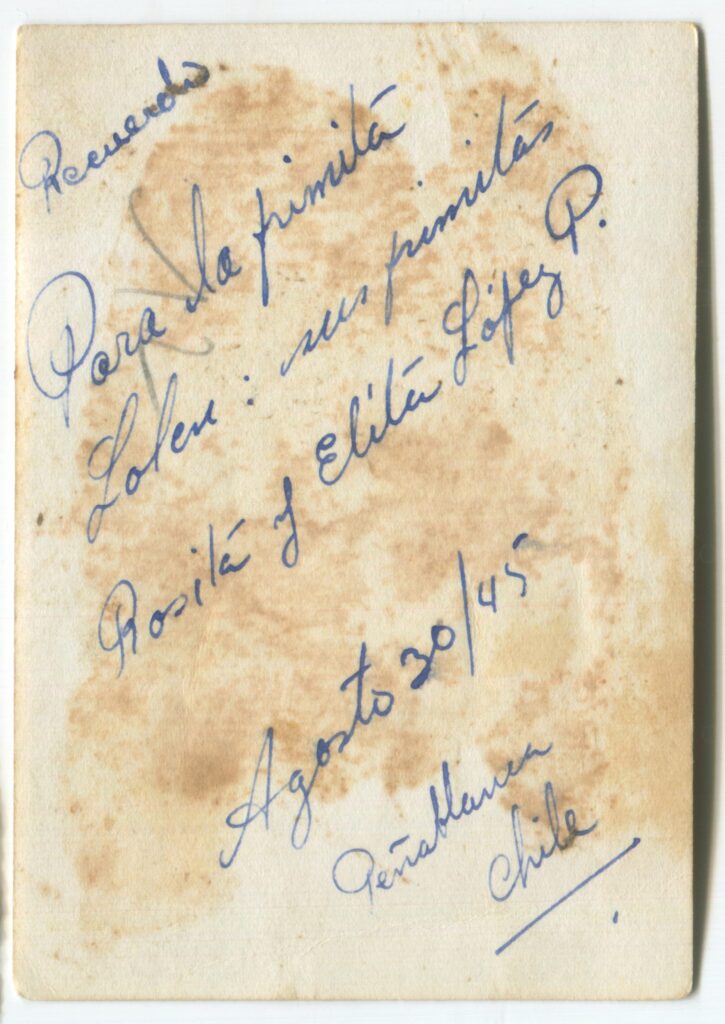 Recuerdo
Para la primita
Lolen: sus primitas
Rosita y Elita López P.
Agosto 30/45
Peñablanca
Chile